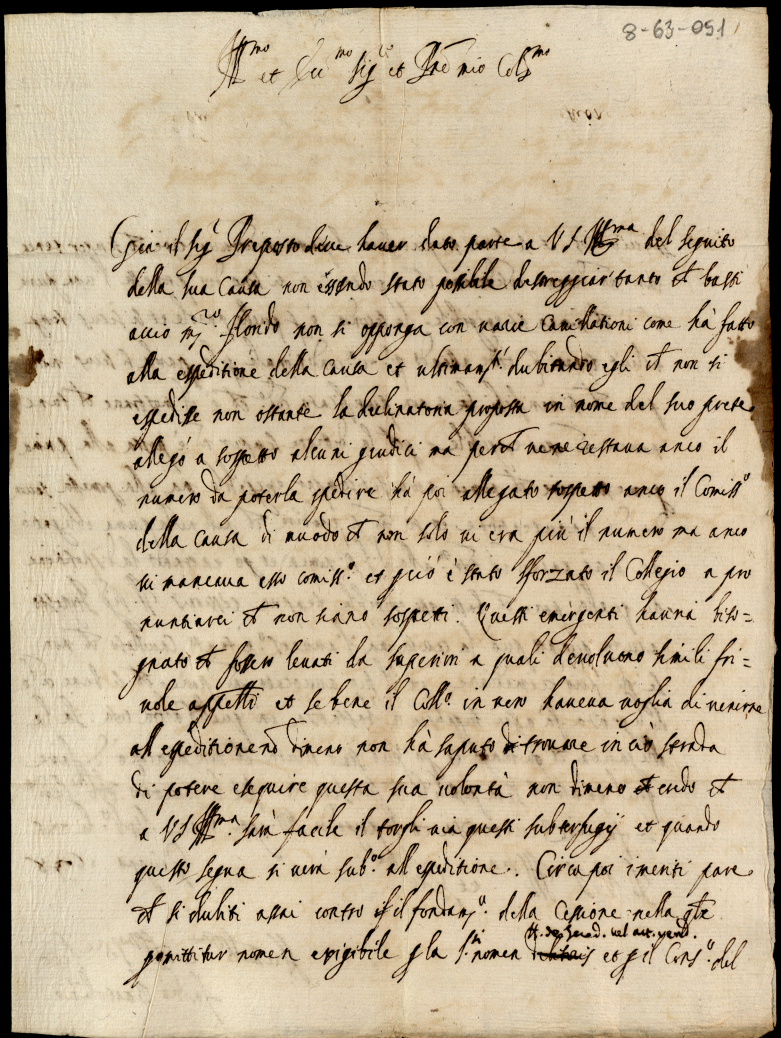 8-63-051
Ill.mo et Ecc.mo Sig.re et Prone mio Col.mo
il sig.r Preposto deve haver dato parte a VS Ill.ma del seguito
della sua causa non essendo stato possibile tanto che basti
accio non si opponga con varie cavillationi come hà fatto
alla espeditione della causa et dubitando egli ch non si
espedisse non ostante la declinatoria proposta in nome del suo prete
allegò a sospetto alcuni giudici ma perch restava anco il
numero da poterla spedire hà poi allegato sospetto anco il Comiss.o
della causa di muodo ch non solo ni era più il numero ma anco
vi mancava esso comiss.o et p ciò è stato sforzato il Collegio a pro
nuntiarci ch non siano sospetti. Questi emergenti havria biso=
gnato ch fossero levati da superiori a quali devolvono simili fri=
vole appelli et se bene il Coll.o in vero haveva voglia di venirne
all espeditione no dimeno non hà saputo trovare in ciò strada
di potere eseguire questa sua volontà non dimeno credo ch
a VS Ill.ma sarà facile il torgli via questi subterfugij et quando
questo segua si verà sub.o all espeditione. Circa poi i meriti pare
ch si dubiti assai contro il fondam.o della Cessione nella qle
promittitur nomen exigibile p la nomen debitoris et p il Cons.o del
ff. de hered. vel act. vend.